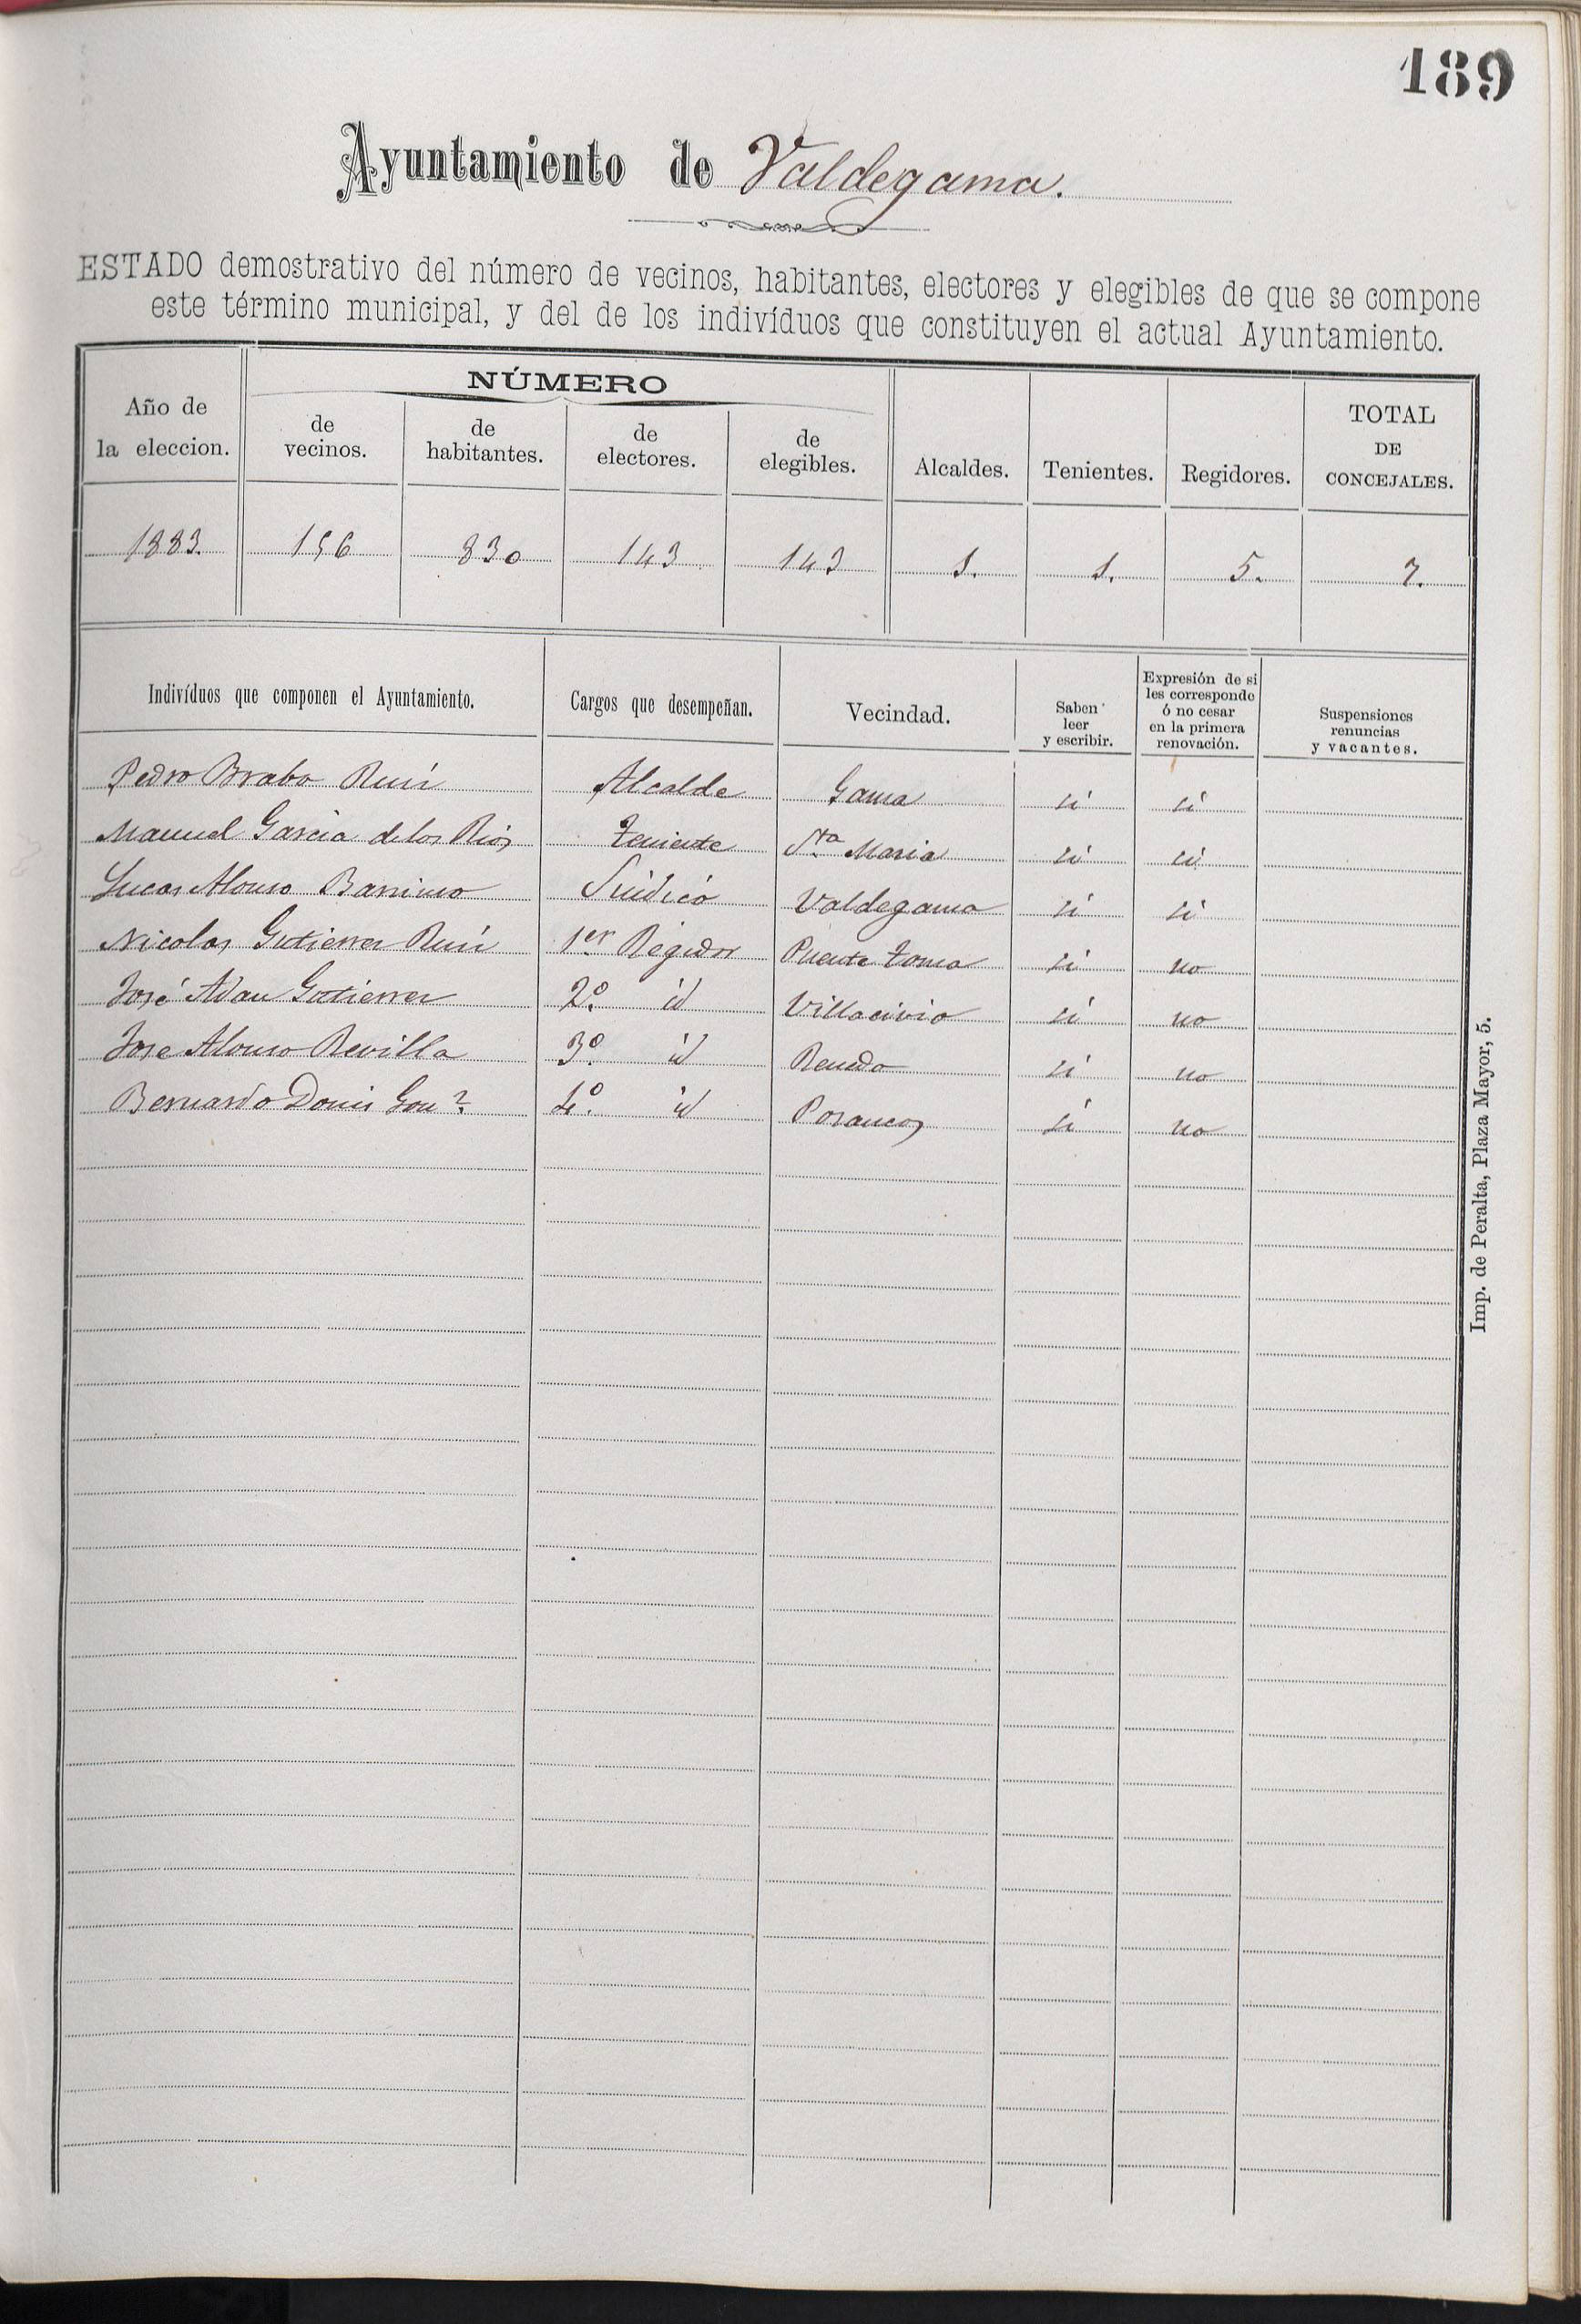 189
Ayuntamiento de Valdegama.
ESTADO demostrativo del número de vecinos, habitantes, electores y elegibles de que se compone
este término municipal, y del de los indivíduos que constituyen el actual Ayuntamiento.
Año de la eleccion. NÚMERO de vecinos. de habitantes. de electores. de elegibles. Alcaldes. Tenientes. Regidores. TOTAL DE CONCEJALES.
1883. 156 830 143 143 1. 1. 5. 7.
Indivíduos que componen el Ayuntamiento. Cargos que desempeñan. Vecindad. Saben leer y escribir. Expresión de si les corresponde ó no cesar en la primera renovación. Suspensiones renuncias y vacantes.
Pedro Brabo Ruiz Alcalde Gama si si
Manuel Garcia de los Rios Teniente Sta. Maria si si
Lucas Alonso Sindico Valdegama si si
Nicolas Gutierrez Ruiz 1er. Regidor Puente Toma si no
José Adan Gutierrez 2º. id Villacivio si no
Jose Alonso Revilla 3º. id Renedo si no
Bernardo Gonz. 4º. id Porancos si no
Imp. de Peralta, Plaza Mayor, 5.